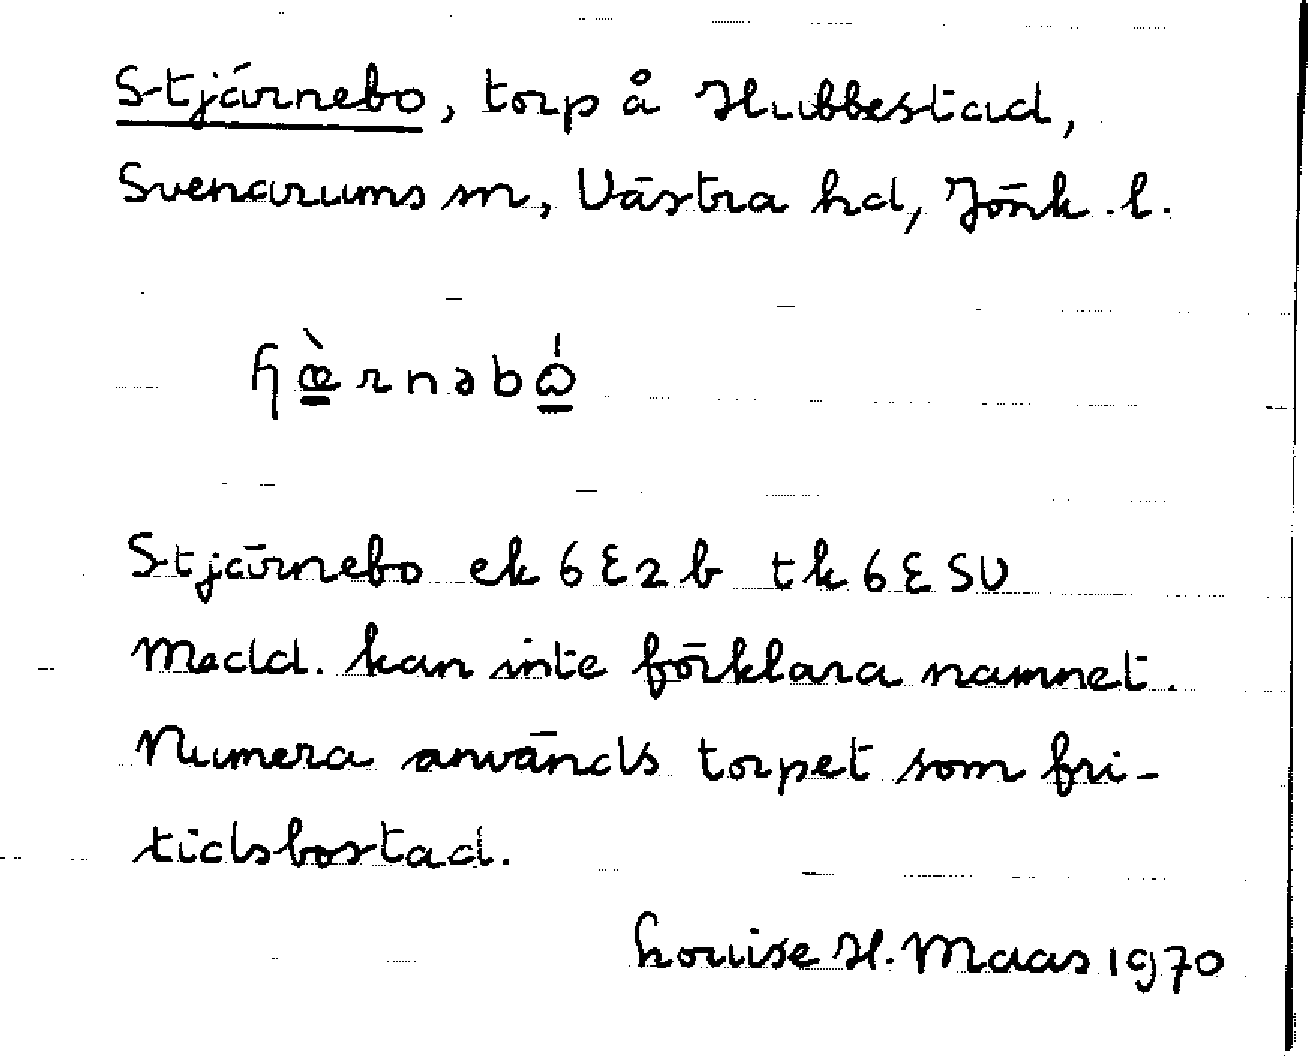 Stjärnebo, torp å Hubbestad,
Svenarums sn, Västra hd, Jönk. l.
ɧæ̀rnəbω̍
Stjärnebo ek 6E2b tk 6ESV
Medd. kan inte förklara namnet.
Numera används torpet som fri-
tidsbostad.
Louise H. Maas 1970